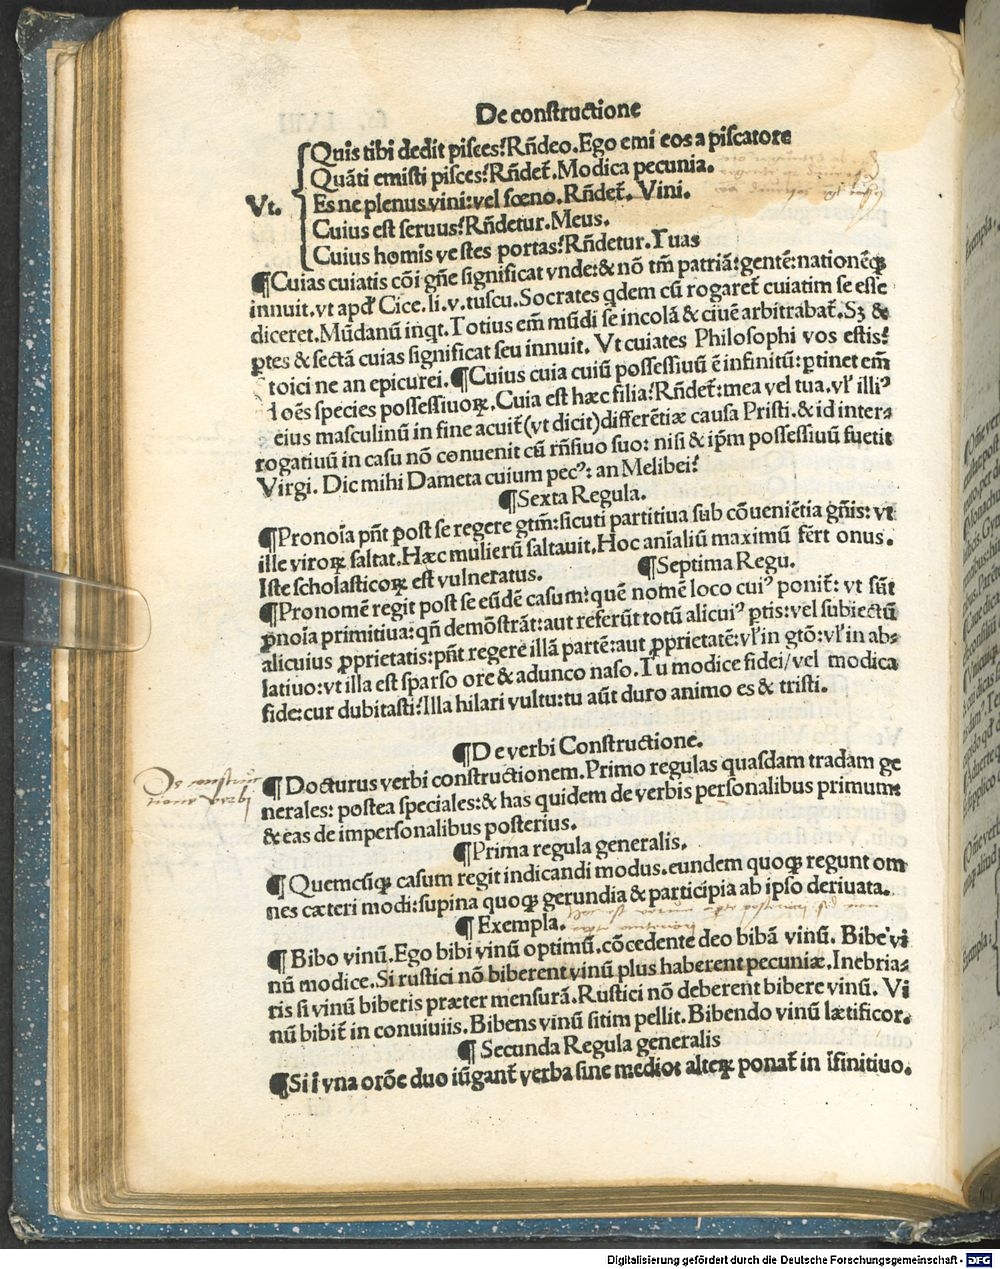 De constructione
Quis tibi dedit pisces? Rñdeo. Ego emi eos a piscatore
Quãti emisti pisces? Rñdet̃. Modica pecunia.
Vt. Es ne plenus vini: vel fœno. Rñdet̃. Vini.
Cuius est seruus? Rñdetur. Meus.
Cuius homĩs vestes portas? Rñdetur. Tuas
¶Cuias cuiatis cõi gñe significat vnde: & nõ tm̃ patriã: gentẽ: nationẽqꝫ
innuit. vt apd̃ Cice. li. v. tuscu. Socrates qdem cũ rogaret̃ cuiatim se esse
diceret. Mũdanũ inqt. Totius em̃ mũdi se incolã & ciuẽ arbitrabat̃. Sꝫ &
ꝑtes & sectã cuias significat seu innuit. Vt cuiates Philosophi vos estis?
toici ne an epicurei. ¶Cuius cuia cuiũ possessiuũ ẽ infinitũ: ꝑtinet em̃
oẽs species possessiuoꝝ. Cuia est hæc filia? Rñdet̃: mea vel tua. vl̕ illiꝰ
eius masculinũ in fine acuit̃ (vt dicit) differẽtiæ causa Pristi. & id inter⸗
rogatiuũ in casu nõ conuenit cũ rñsiuo suo: nisi & ip̃m possessiuũ fuetit
Virgi. Dic mihi Dameta cuium pecꝰ: an Melibei?
¶Sexta Regula.
¶Pronoĩa pñt post se regere gtm̃: sicuti partitiua sub cõueniẽtia gñis: vt
ille viroꝝ saltat. Hæc mulierũ saltauit. Hoc anĩaliũ maximũ fert onus.
Iste scholasticoꝝ est vulneratus. ¶Septima Regu.
¶Pronomẽ regit post se eũdẽ casum: quẽ nomẽ loco cuiꝰ ponit̃: vt sũt
ꝓnoĩa primitiua: qñ demõstrãt: aut referũt totũ alicuiꝰ ꝑtis: vel subiectũ
alicuius ꝓprietatis: pñt regere illã partẽ: aut ꝓprietatẽ: vl̕ in gtõ: vl̕ in ab⸗
latiuo: vt illa est sparso ore & adunco naso. Tu modice fidei/vel modica
fide: cur dubitasti? Illa hilari vultu: tu aũt duro animo es & tristi.
¶De verbi Constructione.
¶Docturus verbi constructionem. Primo regulas quasdam tradam ge
nerales: postea speciales: & has quidem de verbis personalibus primum:
& eas de impersonalibus posterius.
¶Prima regula generalis.
¶Quemcũqꝫ casum regit indicandi modus. eundem quoqꝫ regunt om
nes cæteri modi: supina quoqꝫ gerundia & participia ab ipso deriuata.
¶Exempla.
¶Bibo vinũ. Ego bibi vinũ optimũ. cõcedente deo bibã vinũ. Bibe vi
nũ modice. Si rustici nõ biberent vinũ plus haberent pecuniæ. Inebria⸗
ris si vinũ biberis præter mensurã. Rustici nõ deberent bibere vinũ. Vi
nũ bibit̃ in conuiuiis. Bibens vinũ sitim pellit. Bibendo vinũ lætificor.
¶Secunda Regula generalis
¶Si ĩ vna orõe duo iũgant̃ verba sine medio: alteꝝ ponat̃ in ĩfinitiuo.
Digitalisierung gefördert durch die Deutsche Forschungsgemeinschaft - DFG